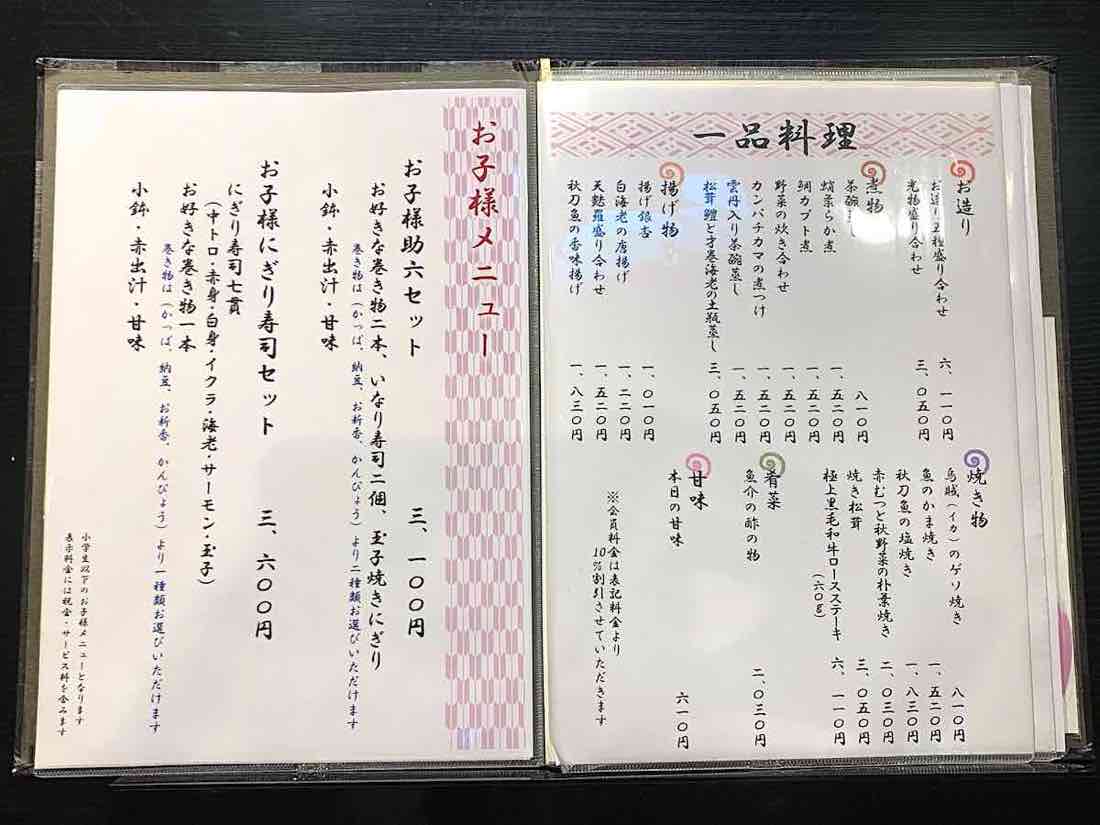 一品料理
お造り
お造り五種盛り合わせ 六、一一〇円
光物盛り合わせ 三、〇五〇円
煮物
茶碗蒸し 八一〇円
蛸柔らか煮 一、五二〇円
鯛カブト煮 一、五二〇円
野菜の炊き合わせ 一、五二〇円
カンパチカマの煮つけ 一、五二〇円
雲丹入り茶碗蒸し 一、五二〇円
松茸鱧と才巻海老の土瓶蒸し 三、〇五〇円
揚げ物
揚げ銀杏 一、〇一〇円
白海老の唐揚げ 一、二二〇円
天麩羅盛り合わせ 一、五二〇円
秋刀魚の香味揚げ 一、八三〇円
焼き物
烏賊（イカ）のゲソ焼き 八一〇円
魚のかま焼き 一、五二〇円
秋刀魚の塩焼き 一、八三〇円
赤むつと秋野菜の朴葉焼き 二、〇三〇円
焼き松茸 三、〇五〇円
極上黒毛和牛ロースステーキ 六、一一〇円
（六〇g）
肴菜
魚介の酢の物 二、〇三〇円
甘味
本日の甘味 六一〇円
※会員料金は表記料金より
10％割引させていただきます
お子様メニュー
お子様助六セット 三、一〇〇円
お好きな巻き物二本、いなり寿司二個、玉子焼きにぎり
巻き物は（かっぱ、納豆、お新香、かんぴょう）より二種類お選びいただけます
小鉢・赤出汁・甘味
お子様にぎり寿司セット 三、六〇〇円
にぎり寿司七貫
（中トロ・赤身・白身・イクラ・海老・サーモン・玉子）
お好きな巻き物一本
巻き物は（かっぱ、納豆、お新香、かんぴょう）より一種類お選びいただけます
小鉢・赤出汁・甘味
小学生以下のお子様メニューとなります
表示料金には税金・サービス料を含みます